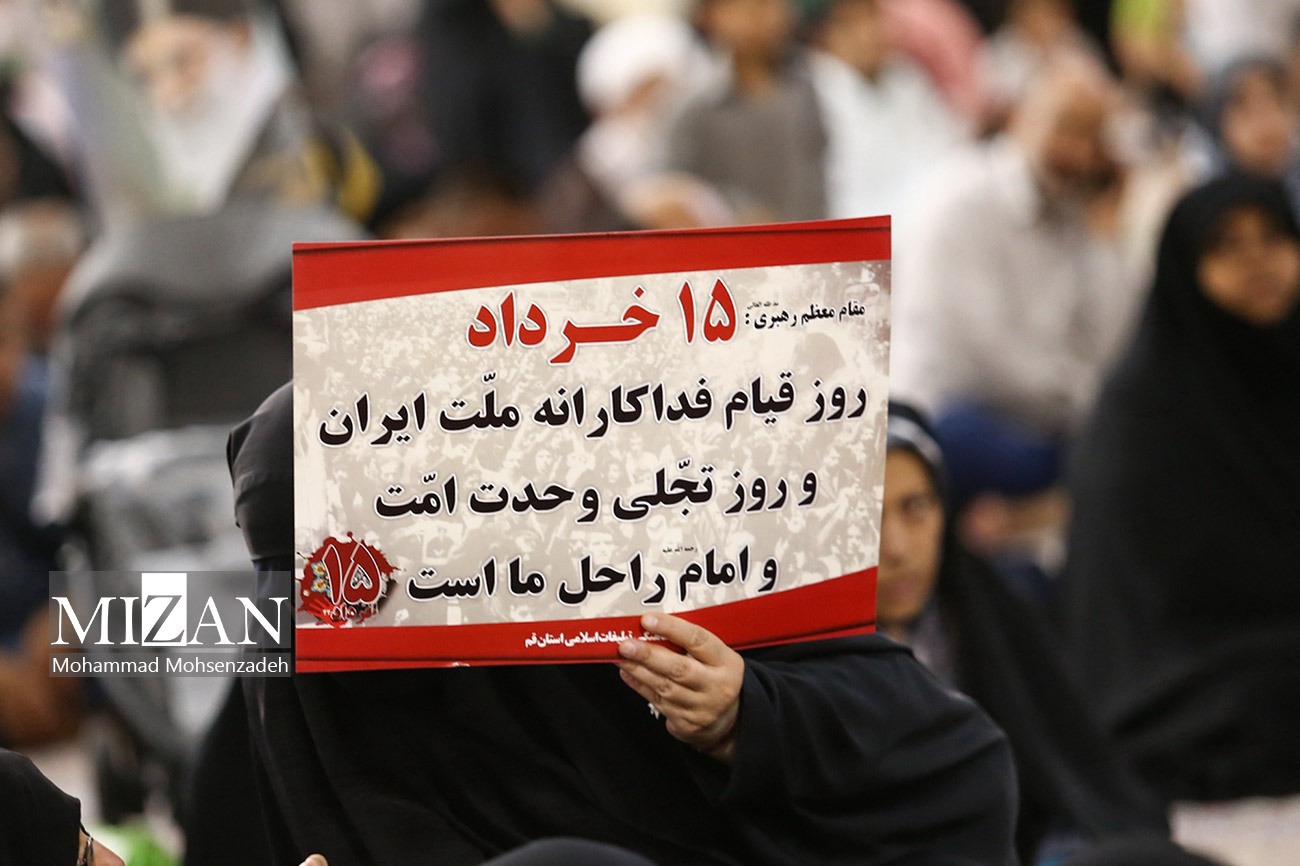 مقام معظم رهبری :
۱۵ خرداد
روز قیام فداکارانه ملّت ایران
و روز تجّلی وحدت امّت
و امام راحل ما است
۱۵
تبلیغات اسلامی استان قم
MIZAN
Mohammad Mohsenzadeh